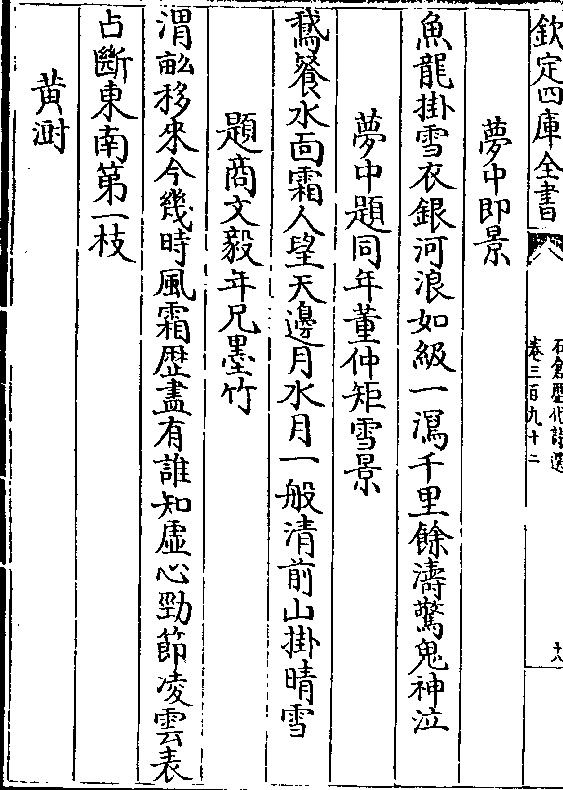 欽定四庫全書
石倉歷代詩選
卷三百九十二
十八
夢中即景
魚龍掛雪衣銀河浪如級一瀉千里餘濤驚鬼神泣
夢中題同年董仲矩雪景
鵞飱水面霜人望天邊月水月一般清前山掛晴雪
題商文毅年兄墨竹
渭畝移來今幾時風霜歷盡有誰知虛心勁節凌雲表
占斷東南第一枝
黃澍